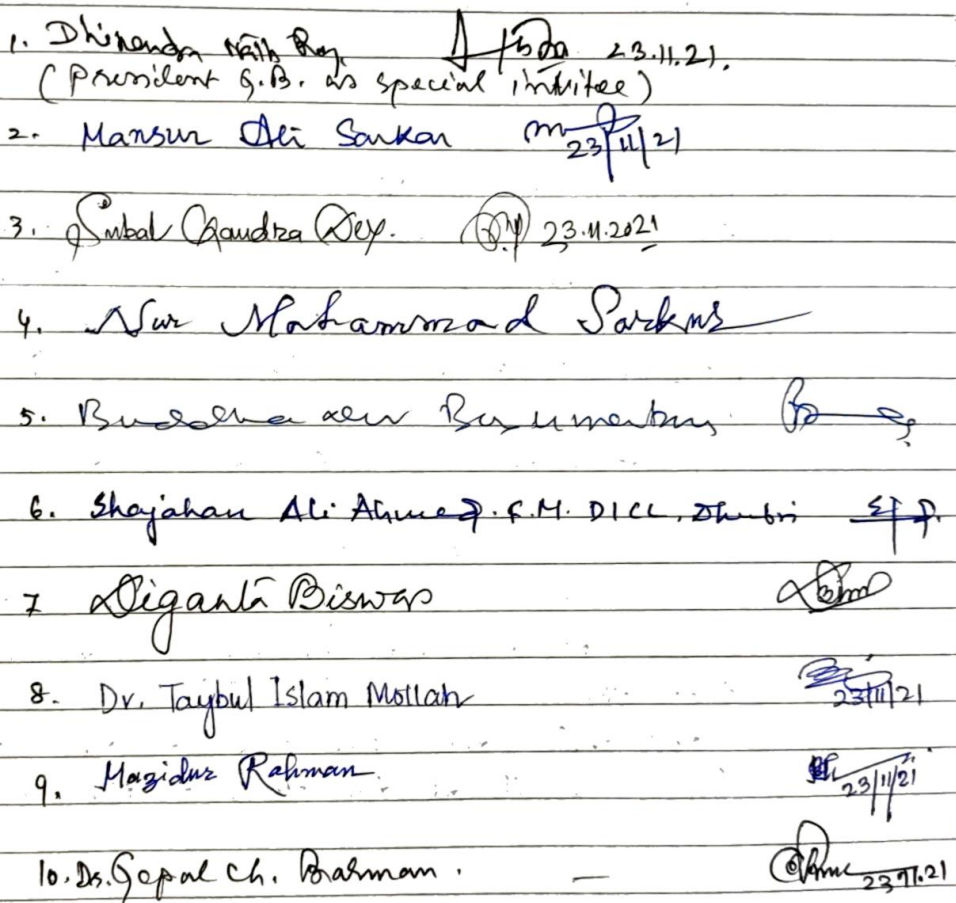 1. Dhirendra Nath Roy. 23.11.21.
(President G.B. as special invitee)
2. Mansur Ali Sarkar 23/11/21
3. Subal Chandra Dey. 23.11.2021
4. Nur Mohammad Sarkar
5. Buddhadev Basumatary
6. Shajahan Ali Ahmed. G.M. DICC, Dhubri
7 Diganta Biswas
8. Dr. Taybul Islam Mollah 23/11/21
9. Mazidur Rahman 23/11/21
10. Dr. Gopal Ch. Barman. — 23.11.21